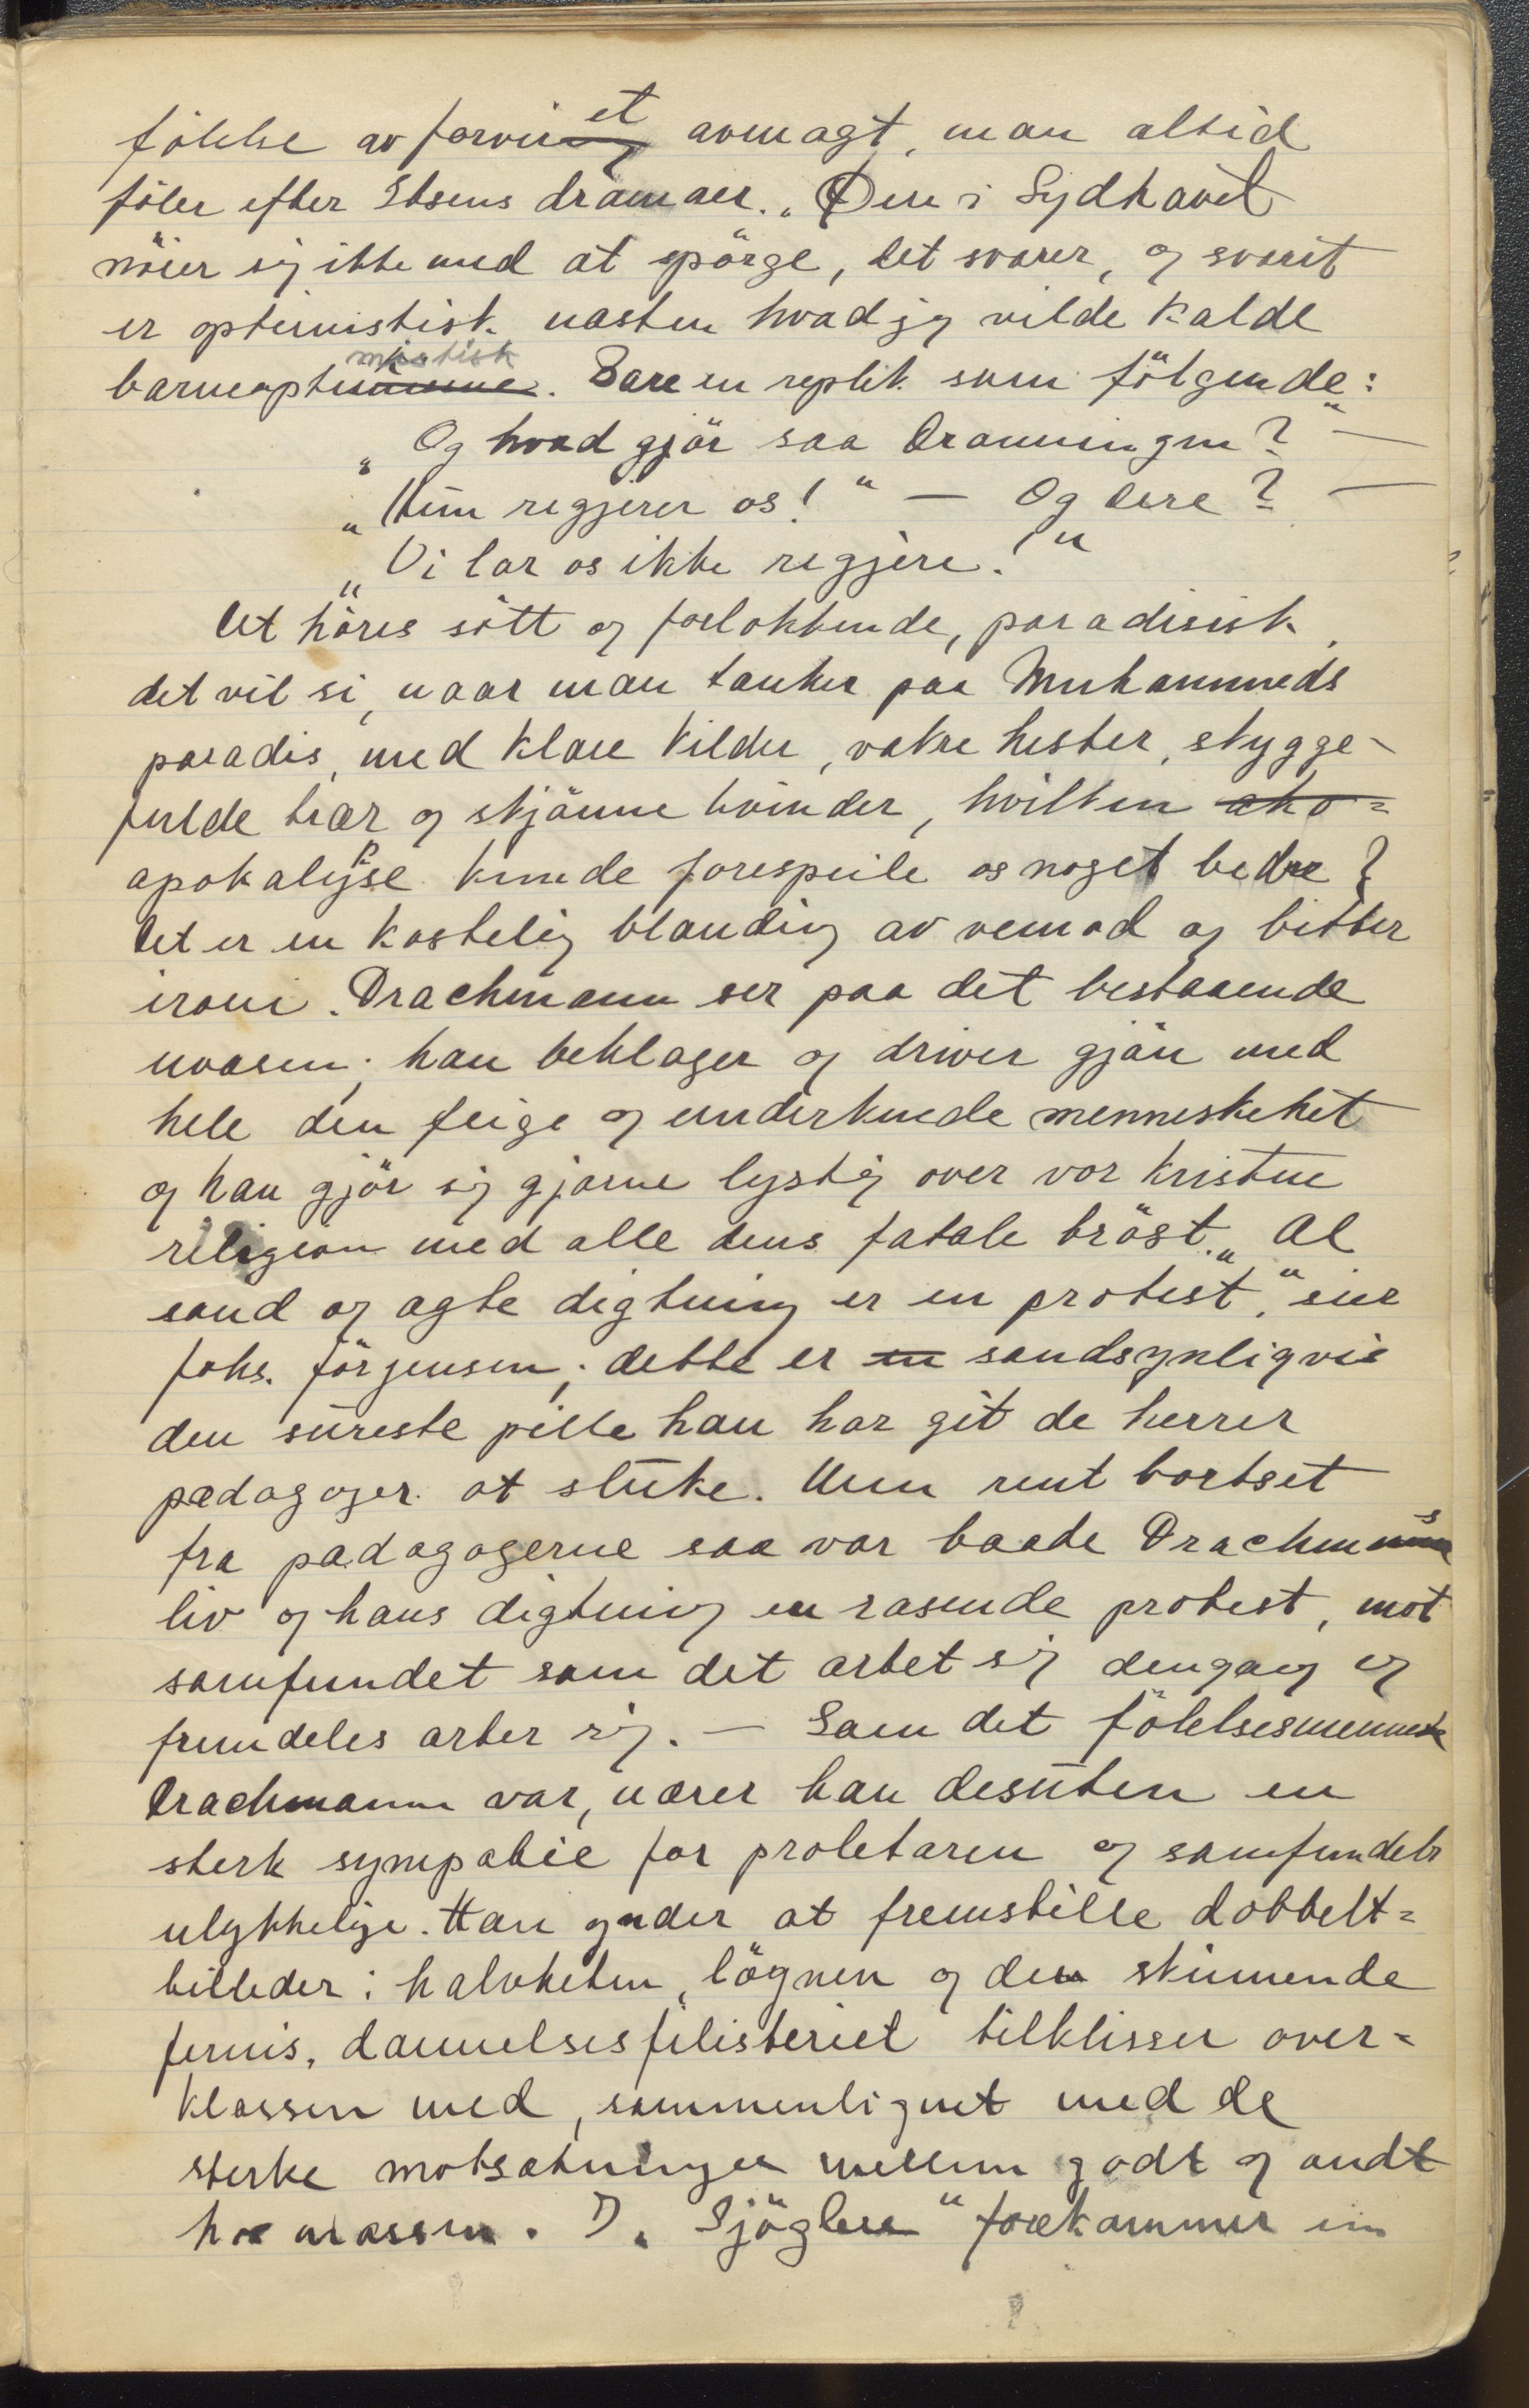 følelse av forvirret avmagt, man altid
føler efter Ibsens dramaer. „Øen i Sydhavet
nøier sig ikke med at spørge, det svarer, og svaret
er optimistisk næsten hvad jeg vilde kalde
barneoptimistisk. Bare en replik som følgende:
„Og hvad gjør saa Dronningen?" —
„Hun regjerer os!" — Og dere? —
„Vi lar os ikke regjere!"
Det høres søtt og forlokkende, paradisisk,
det vil si, naar man tænker paa Muhammeds
paradis, med klare kilder, vakre hester, skygge-
fulde trær og skjønne kvinder, hvilken
apokalypse kunde forespeile os noget bedre?
Det er en kostelig blanding av vemod og bitter
ironi. Drachmann ser paa det bestaaende
uvæsen; han beklager og driver gjøn med
hele den feige og underkuede menneskehet
og han gjør sig gjerne lystig over vor kristne
religion med alle dens fatale brøst. „Al
sand og ægte digtning er en protest", sier
Johs. Jørgensen; dette er sandsynligvis
den sureste pille han har git de herrer
pædagoger at sluke. Men rent bortset
fra pædagogerne saa var baade Drachms
liv og hans digtning en rasende protest, mot
samfundet som det artet sig dengang og
fremdeles arter sig. — Som det følelsesmenneske
Drachmann var, nærer han desuten en
sterk sympatie for proletaren og samfundets
ulykkelige. Han ynder at fremstille dobbelt=
billeder: halvheten, løgnen og den skinnende
fernis, dannelsesfilisteriet tilklisser over=
klassen med, sammenlignet med de
sterke motsætninger mellem godt og ondt
hos massen. I „Sjøglere" forekommer en